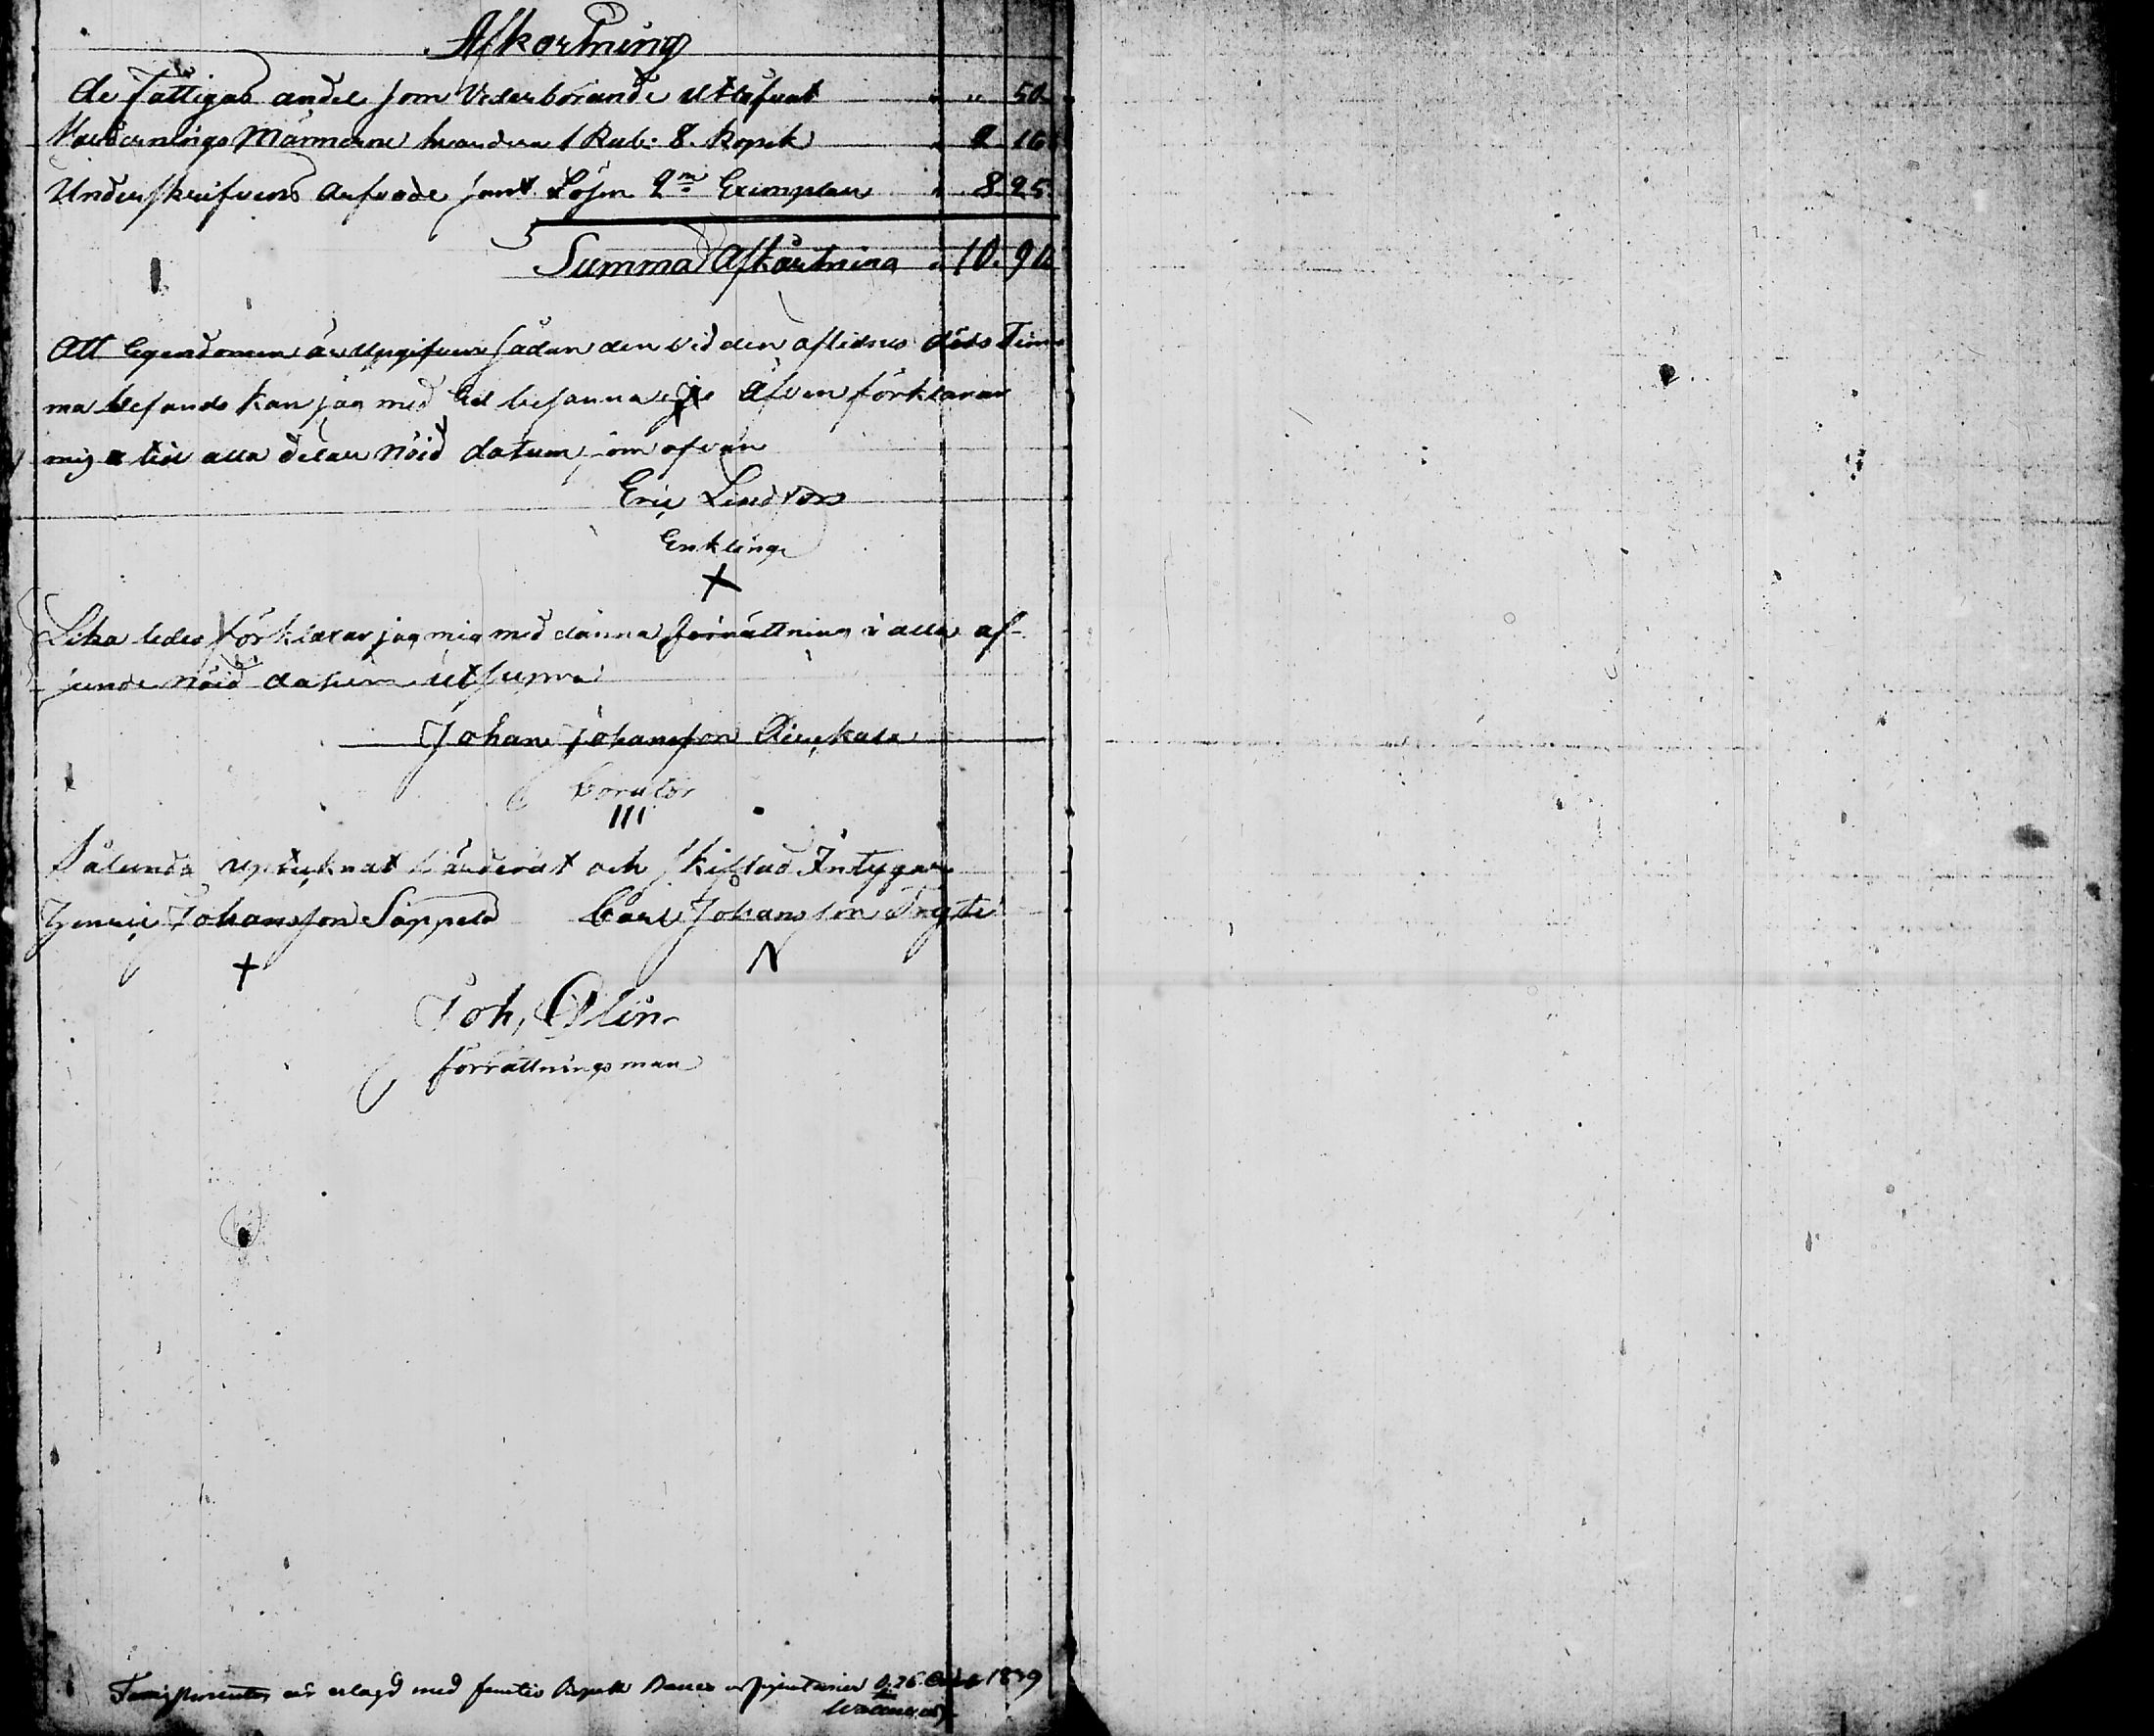 Afkortning
de Fattigas andel som Vederbörande utlefvat " " 50.
Värdernings Männerne hvardera 1 Rub: 8. kopek " 2 16
Underskrifvens Arfvode samt Lösen 2ne Exemplar " 8. 25.
Summa Afkortning " 10. 91
Att Egendomen är Uppgifven sådan den vid den aflidnes döds Tim-
ma befands kan jag med Ed besanna äfven förklarar
mig till alla delar nöid datum som ofvan
Eric Lindfors
Enkling
Lika ledes förklarar jag mig med denna förrättning i alla af-
seende nöid datum ut supra
Johan Johansson
Corator
III
Sålunda uptecknat värderat och skiftad Intygar
Henric Johansson Säppelä Carl Johansson
N
Joh, Alin
förrättningsman
är erlagd med femtio Kopek 1839